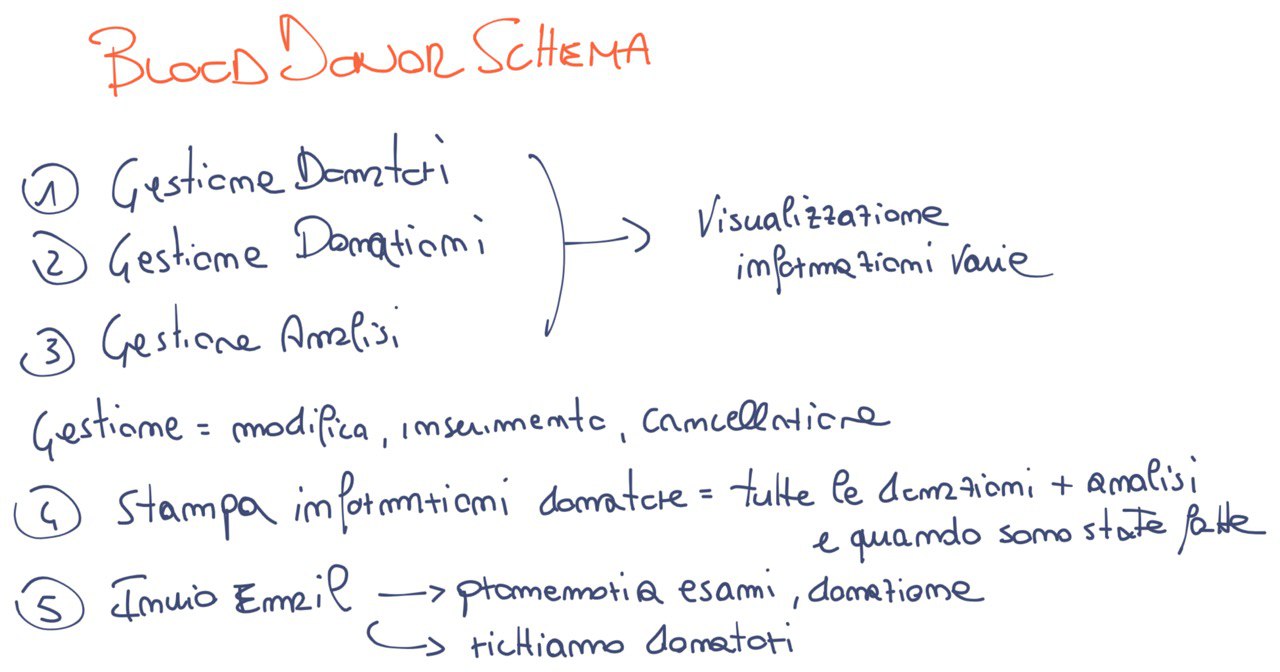 BLOOD DONOR SCHEMA
1 Gestione Donatori
2 Gestione Donazioni
3 Gestione Analisi
Visualizzazione
informazioni varie
Gestione = modifica, inserimento, cancellazione
4 Stampa informazioni donatore = tutte le donazioni + analisi
e quando sono state fatte
5 Invio Email → promemoria esami, donazione
→ richiamo donatori